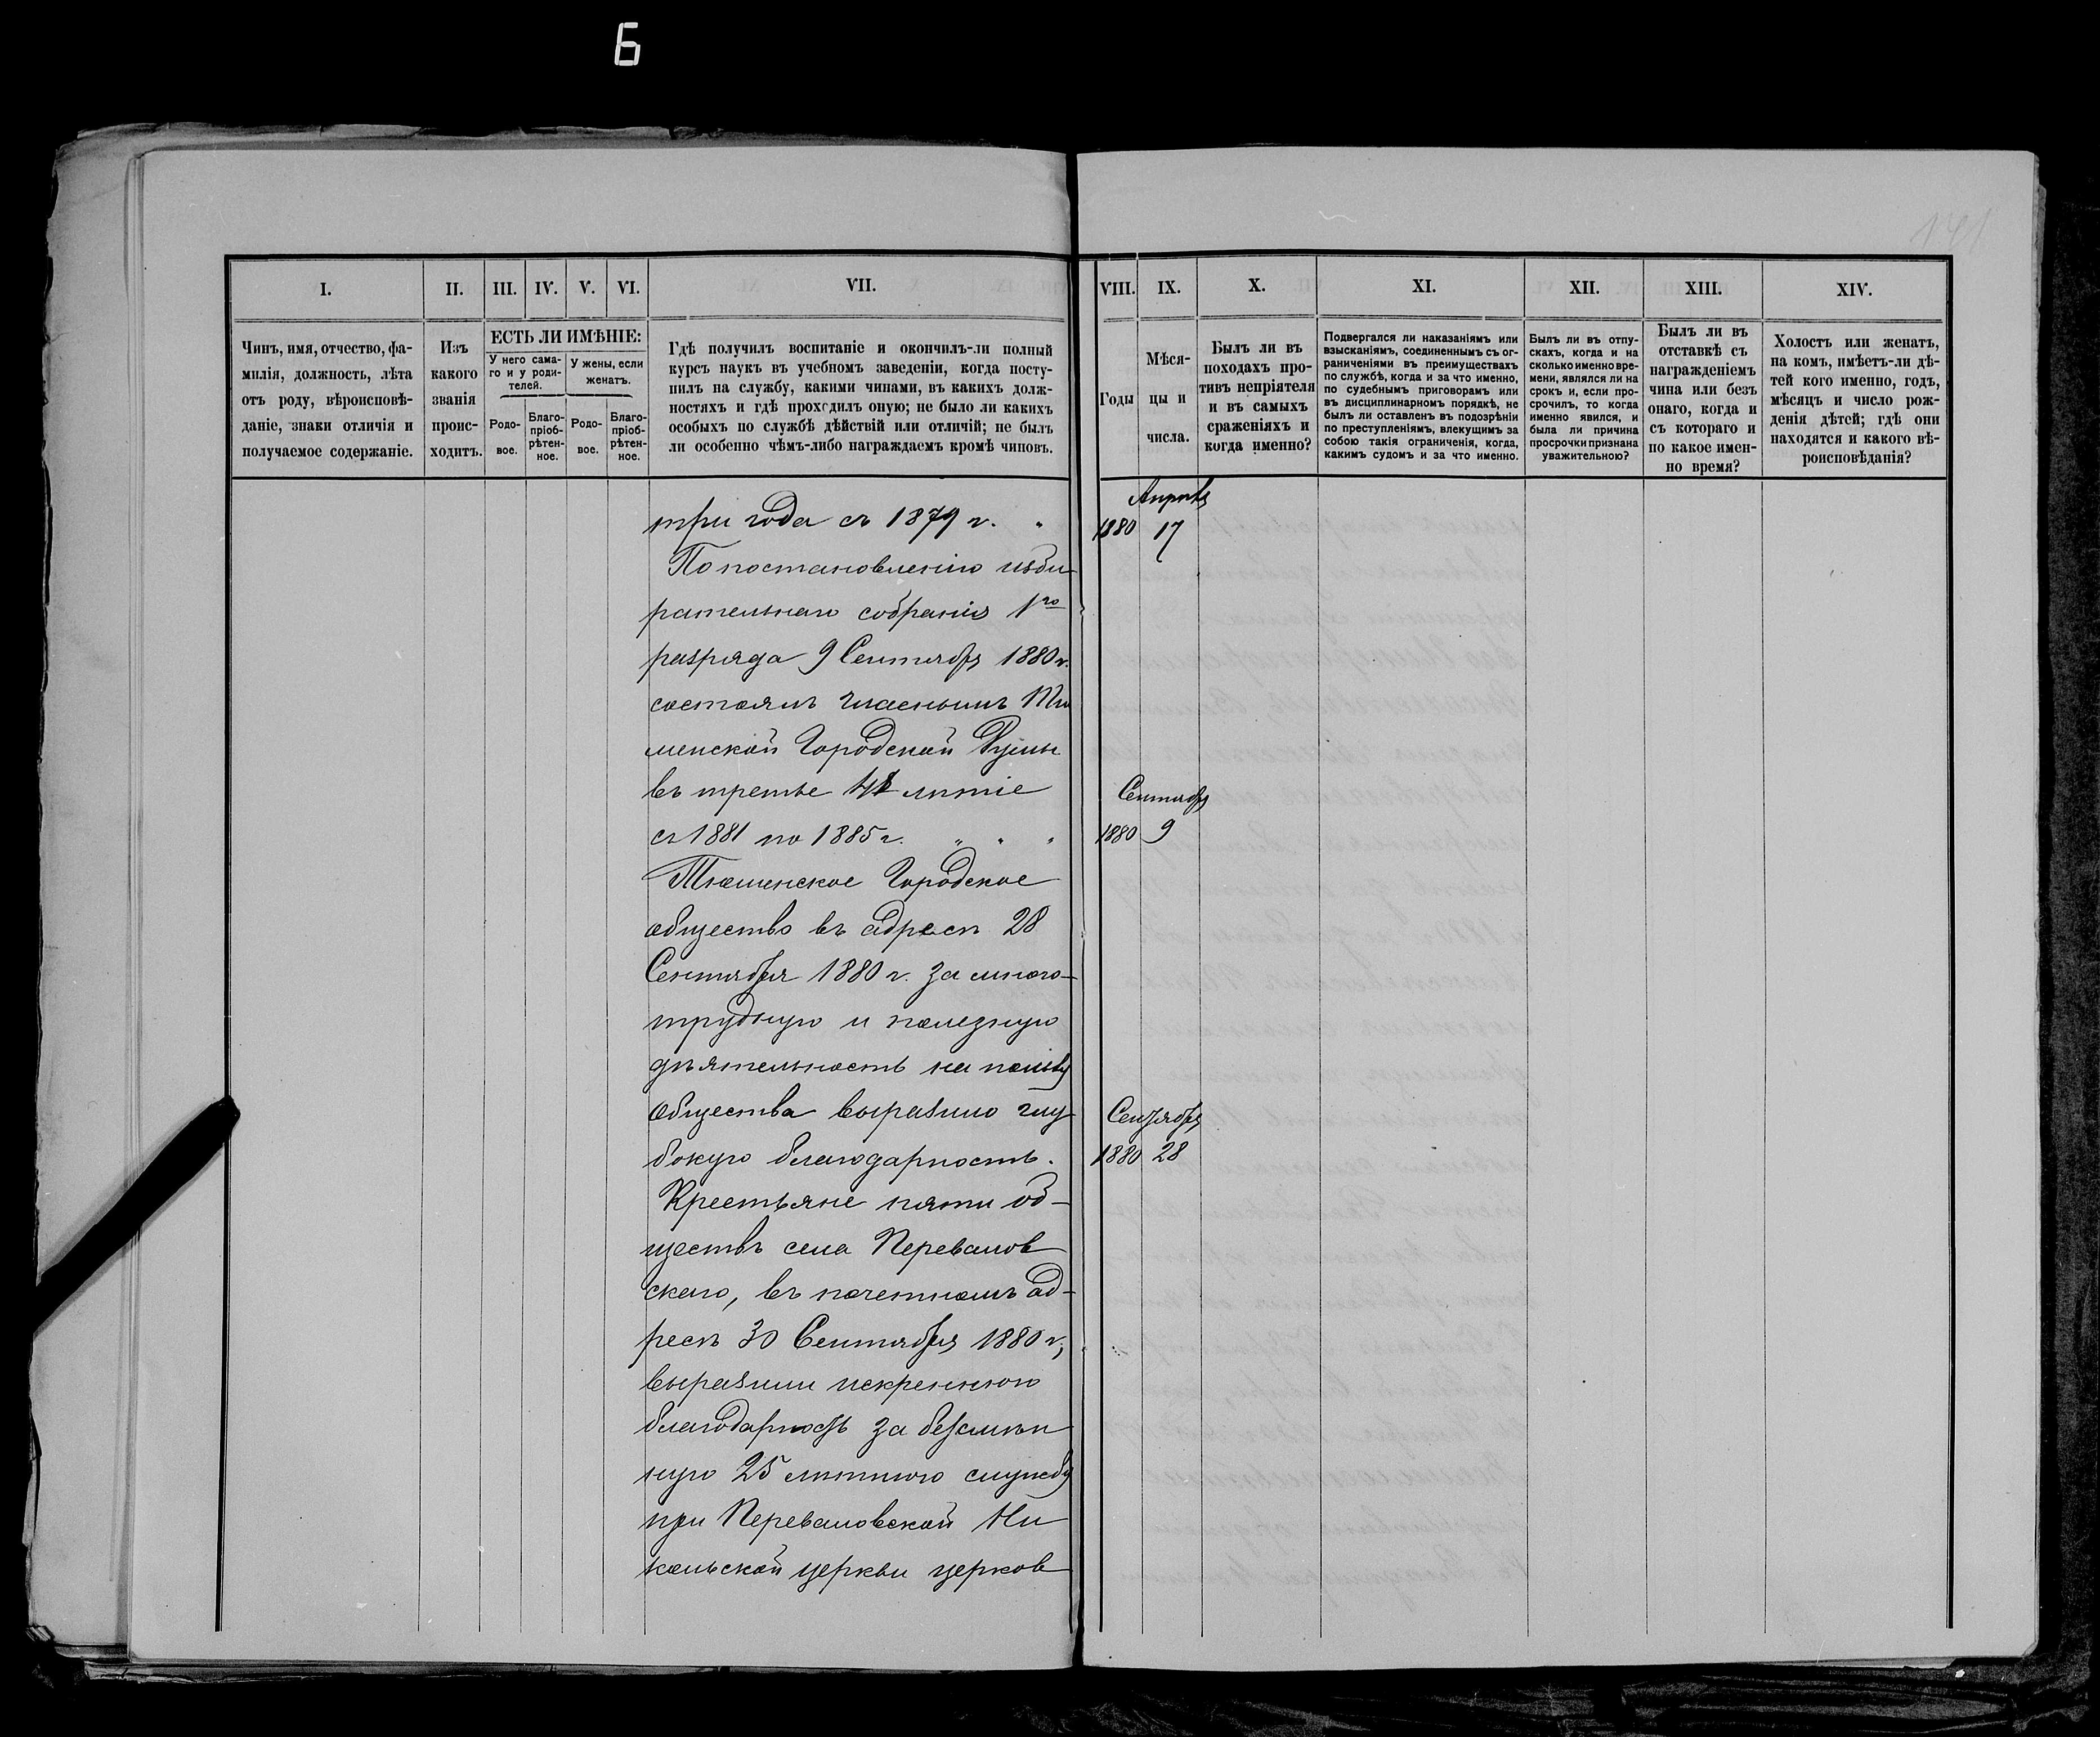 Б
141
I.
II.
III.
IV.
V.
VI.
VII.
VIII.
IX.
X.
XI.
XII.
XIII.
XIV.
Чинъ, имя, отчество, фа-
милія, должность, лѣта
отъ роду, вѣроисповѣ-
даніе, знаки отличія и
получаемое содержаніе.
Изъ
какого
званія
проис-
ходитъ.
ЕСТЬ ЛИ ИМѢНІЕ:
У него сама-
го и у роди-
телей.
У жены, если
женатъ.
Родо-
вое.
Благо-
пріоб-
рѣтен-
ное.
Родо-
вое.
Благо-
пріоб-
рѣтен-
ное.
Гдѣ получилъ воспитаніе и окончилъ-ли полный
курсъ наукъ въ учебномъ заведеніи, когда посту-
пилъ на службу, какими чинами, въ какихъ долж-
ностяхъ и гдѣ проходилъ оную; не было ли какихъ
особыхъ по службѣ дѣйствій или отличій; не былъ
ли особенно чѣмъ-либо награждаемъ кромѣ чиновъ.
Годы
Мѣся-
цы и
числа.
Былъ ли въ
походахъ про-
тивъ непріятеля
и въ самыхъ
сраженіяхъ и
когда именно?
Подвергался ли наказаніямъ или
взысканіямъ, соединеннымъ съ ог-
раниченіями въ преимуществахъ
по службѣ, когда и за что именно,
по судебнымъ приговорамъ или
въ дисциплинарномъ порядкѣ, не
былъ ли оставленъ въ подозрѣніи
по преступленіямъ, влекущимъ за
собою такія ограниченія, когда,
какимъ судомъ и за что именно.
Былъ ли въ отпу-
скахъ, когда и на
сколько именно вре-
мени, являлся ли на
срокъ и, если про-
срочилъ, то когда
именно явился, и
была ли причина
просрочки признана
уважительною?
Былъ ли въ
отставкѣ съ
награжденіемъ
чина или безъ
онаго, когда и
съ котораго и
по какое имен-
но время?
Холостъ или женатъ,
на комъ, имѣетъ-ли дѣ-
тей кого именно, годъ,
мѣсяцъ и число рож-
денія дѣтей; гдѣ они
находятся и какого вѣ-
роисповѣданія?
три года съ 1879 г. "
Апрѣля
1880 17
По постановленію изби-
рательнаго собранія 1го
разряда 9 Сентября 1880 г.
состоялъ гласнымъ Тю
менской Городской Думы
въ третье 4х лѣтіе
съ 1881 по 1885 г. " " "
Сентября
1880 9
Тюменское Городское
общество въ адресѣ 28
Сентября 1880 г. за много-
трудную и полезную
дѣятельность на пользу
общества выразило глу-
бокую благодарность.
Сентября
1880 28
Крестьяне пяти об-
ществъ села Перевалов
скаго, въ почетномъ ад-
ресѣ 30 Сентября 1880 г.,
выразили искреннюю
благодарность за безсмѣн
ную 25 лѣтнюю службу
при Переваловской Ни
кольской церкви церков